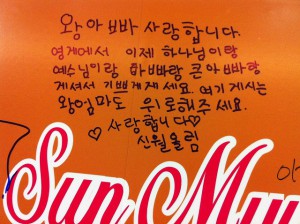 왕아빠 사랑합니다.
영계에서 이제 하나님이랑
예수님이랑 아빠랑 큰아빠랑
계셔서 기쁘게계세요. 여기계시는
왕엄마도 위로해주세요.
♡사랑합니다♡
신월올림
Sun Mu